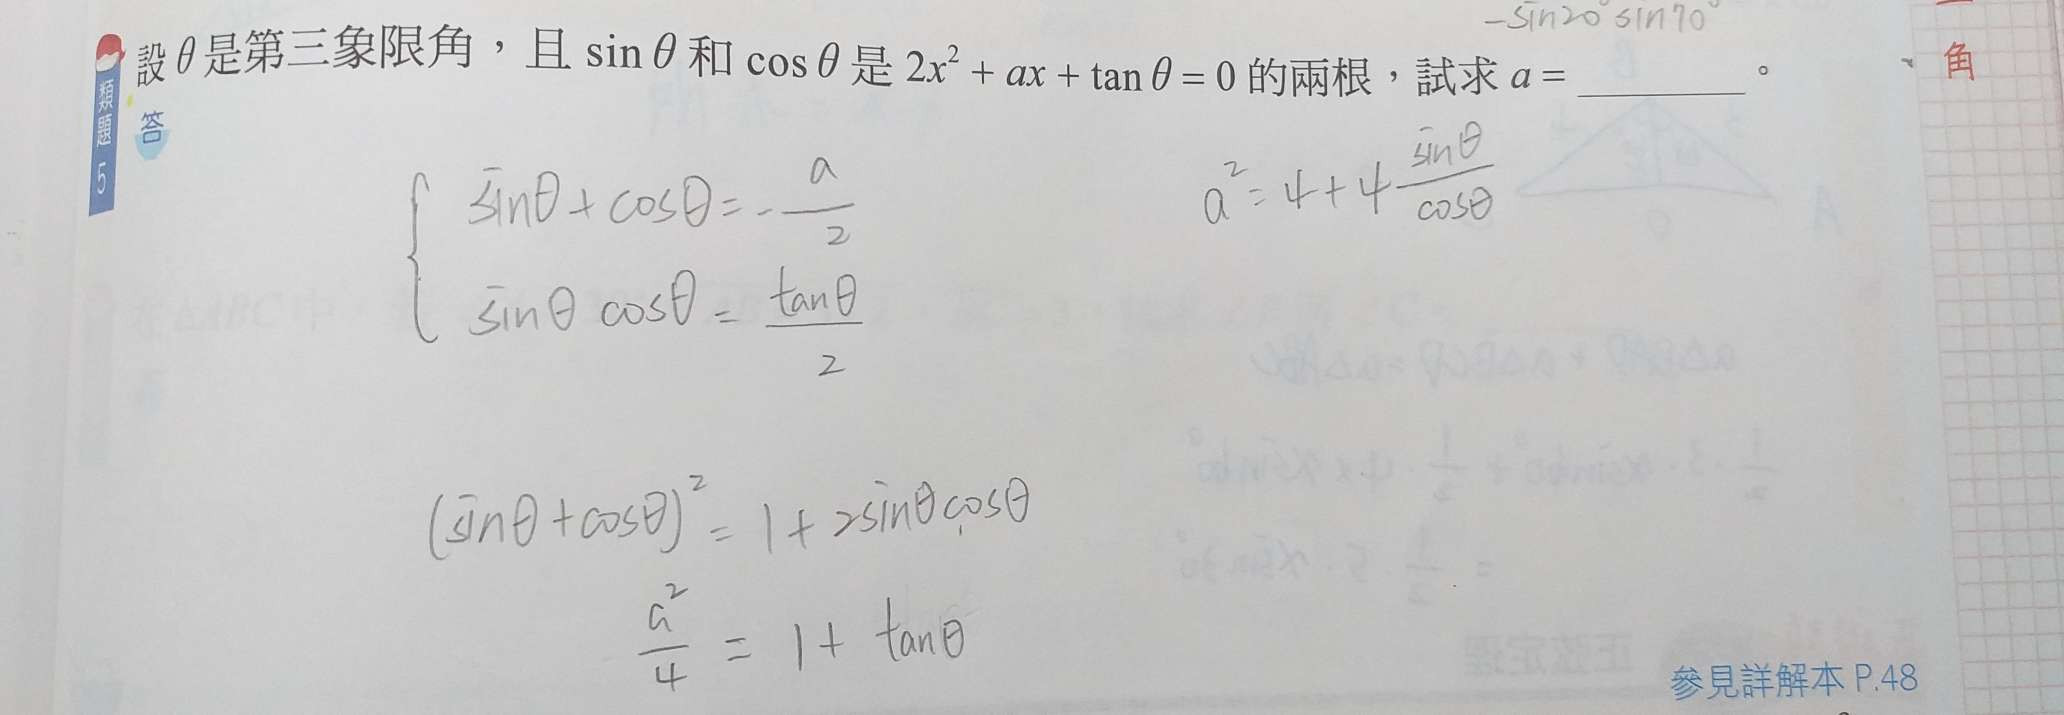 -sin20°sin70°
設θ是第三象限角，且 sinθ 和 cosθ 是 2x² + ax + tanθ = 0 的兩根，試求 a = ________ 。
角
類題 5
答
sinθ + cosθ = - a/2
sinθ cosθ = tanθ/2
a² = 4 + 4 sinθ/cosθ
(sinθ + cosθ)² = 1 + 2sinθcosθ
a²/4 = 1 + tanθ
參見詳解本 P.48